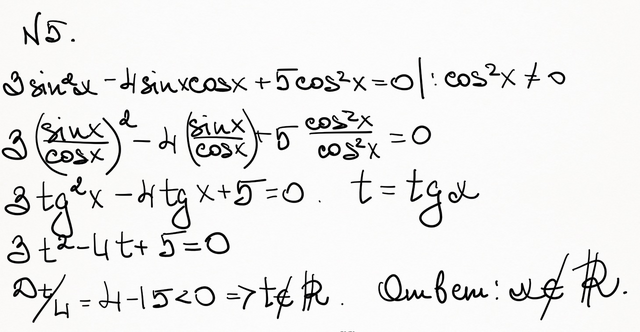 N5.
3sin²x - 4sinxcosx + 5cos²x = 0 | : cos²x ≠ 0
3(sinx/cosx)² - 4(sinx/cosx) + 5 cos²x/cos²x = 0
3tg²x - 4tgx + 5 = 0. t = tgx
3t² - 4t + 5 = 0
Dt/4 = 4 - 15 < 0 => t ∉ ℝ. Ответ: x ∉ ℝ.